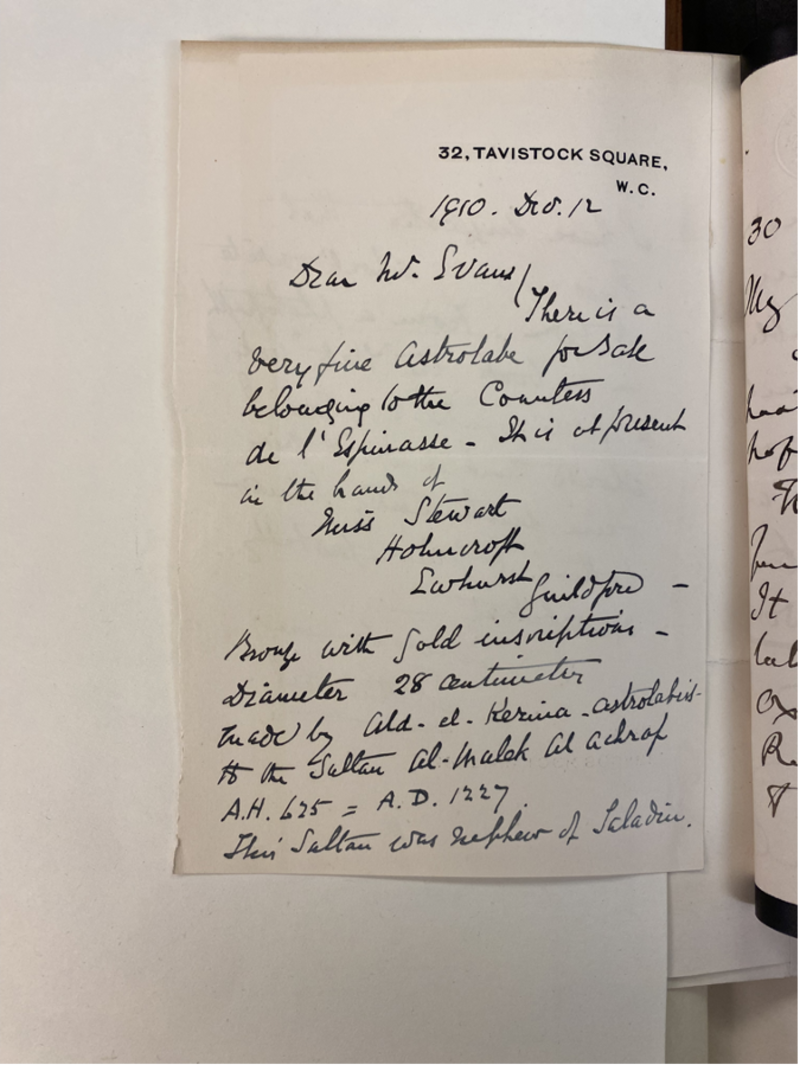 32, TAVISTOCK SQUARE,
W.C.
1910. Dec. 12
Dear Mr. Evans/
There is a
very fine Astrolabe for Sale
belonging to the Countess
de l'Espinasse - It is at present
in the hands of
Miss Stewart
Holmcroft
Ewhurst Guildford -
Bronze with Gold inscriptions -
Diameter 28 centimeter
made by Abd-el-Kerima - astrolabist-
to the Sultan Al-Malek Al Achraf
A.H. 625 = A.D. 1227.
This Sultan was nephew of Saladin.
30
My
It